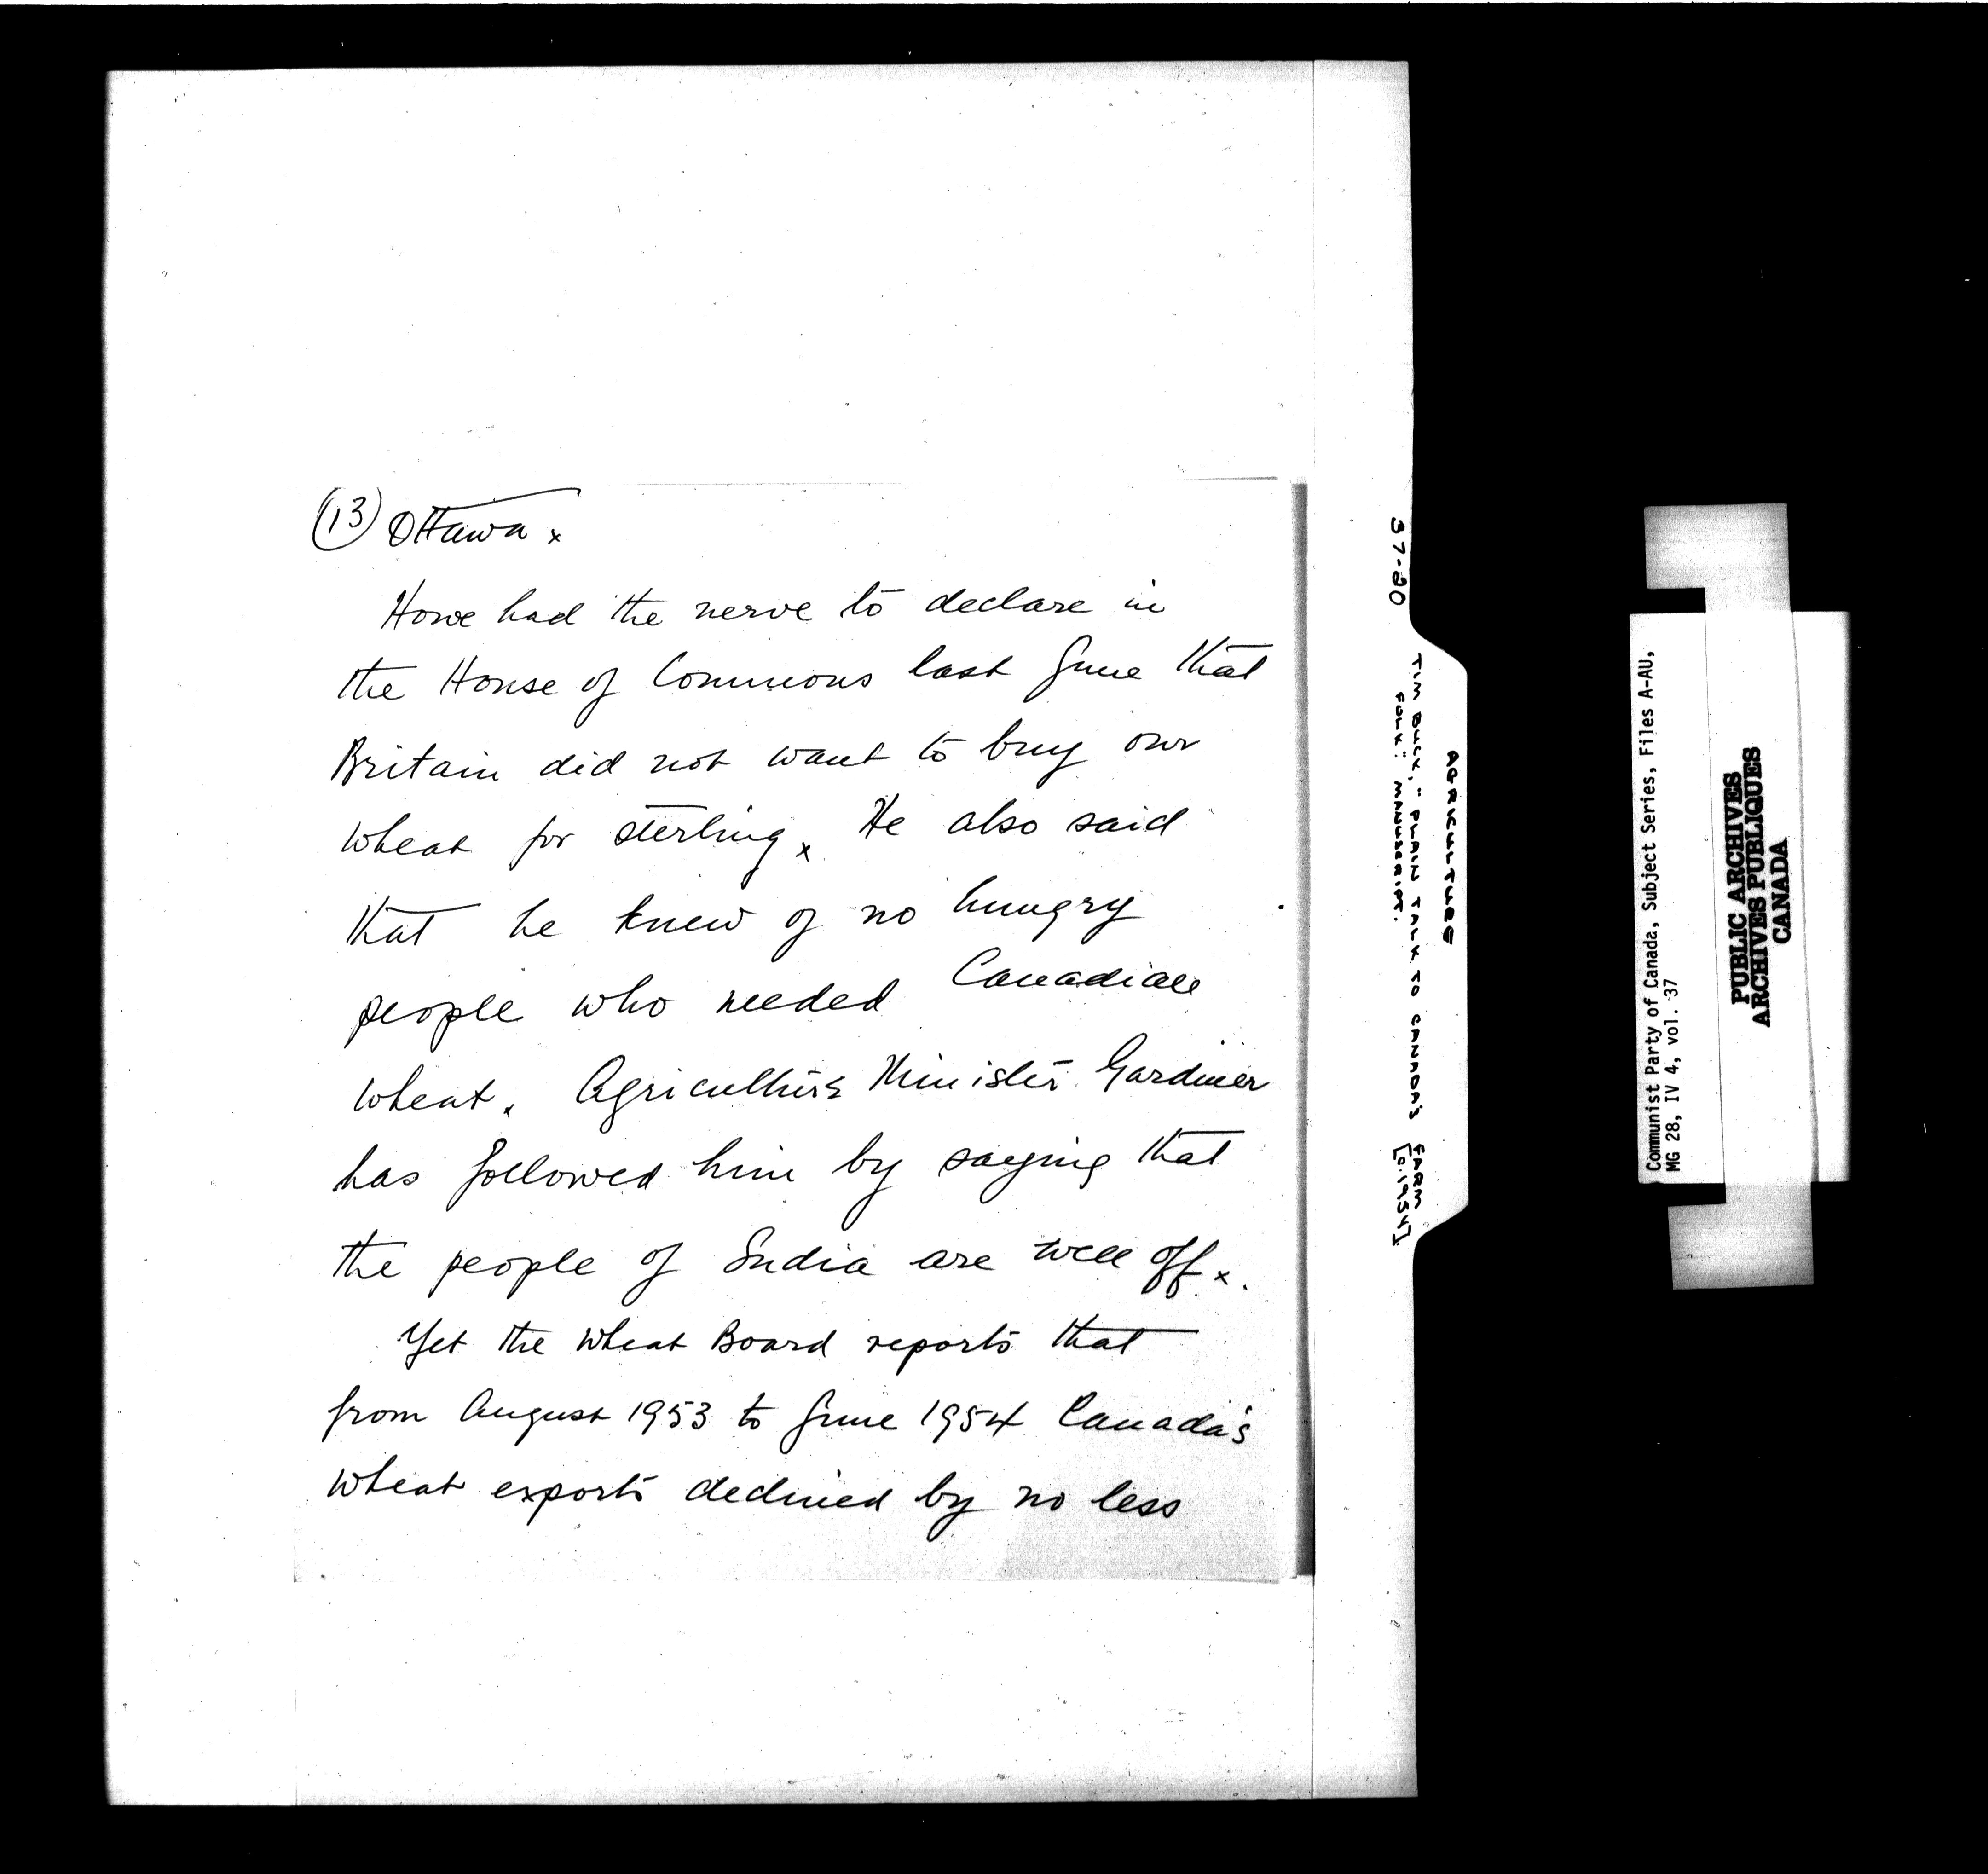 (13) Ottawa x
Howe had the nerve to declare in
the House of Commons last June that
Britain did not want to buy our
wheat for sterling x He also said
that he knew of no hungry
people who needed Canadian
wheat x Agriculture Minister Gardiner
has followed him by saying that
the people of India are well off x.
Yet the Wheat Board reports that
from August 1953 to June 1954 Canada's
wheat exports declined by no less
37-20
AGRICULTURE
TIM BUCK, "PLAIN TALK TO CANADA'S FARM
FOLK: MANUSCRIPT. [c.1954]
Communist Party of Canada, Subject Series, Files A-AU,
MG 28, IV 4, vol. 37
PUBLIC ARCHIVES
ARCHIVES PUBLIQUES
CANADA